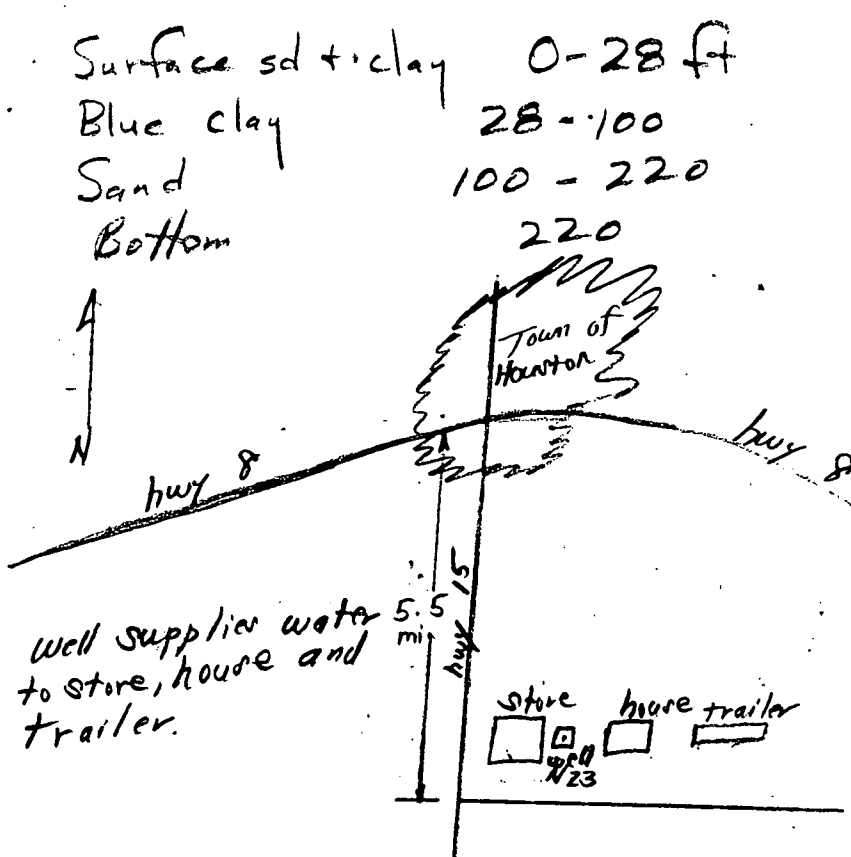 Surface sd + clay 0-28 ft
Blue clay 28-100
Sand 100 - 220
Bottom 220
Town of
Houston
N
hwy 8
hwy 8
5.5
mi
hwy 15
well supplies water
to store, house and
trailer.
store
house
trailer
well
N23